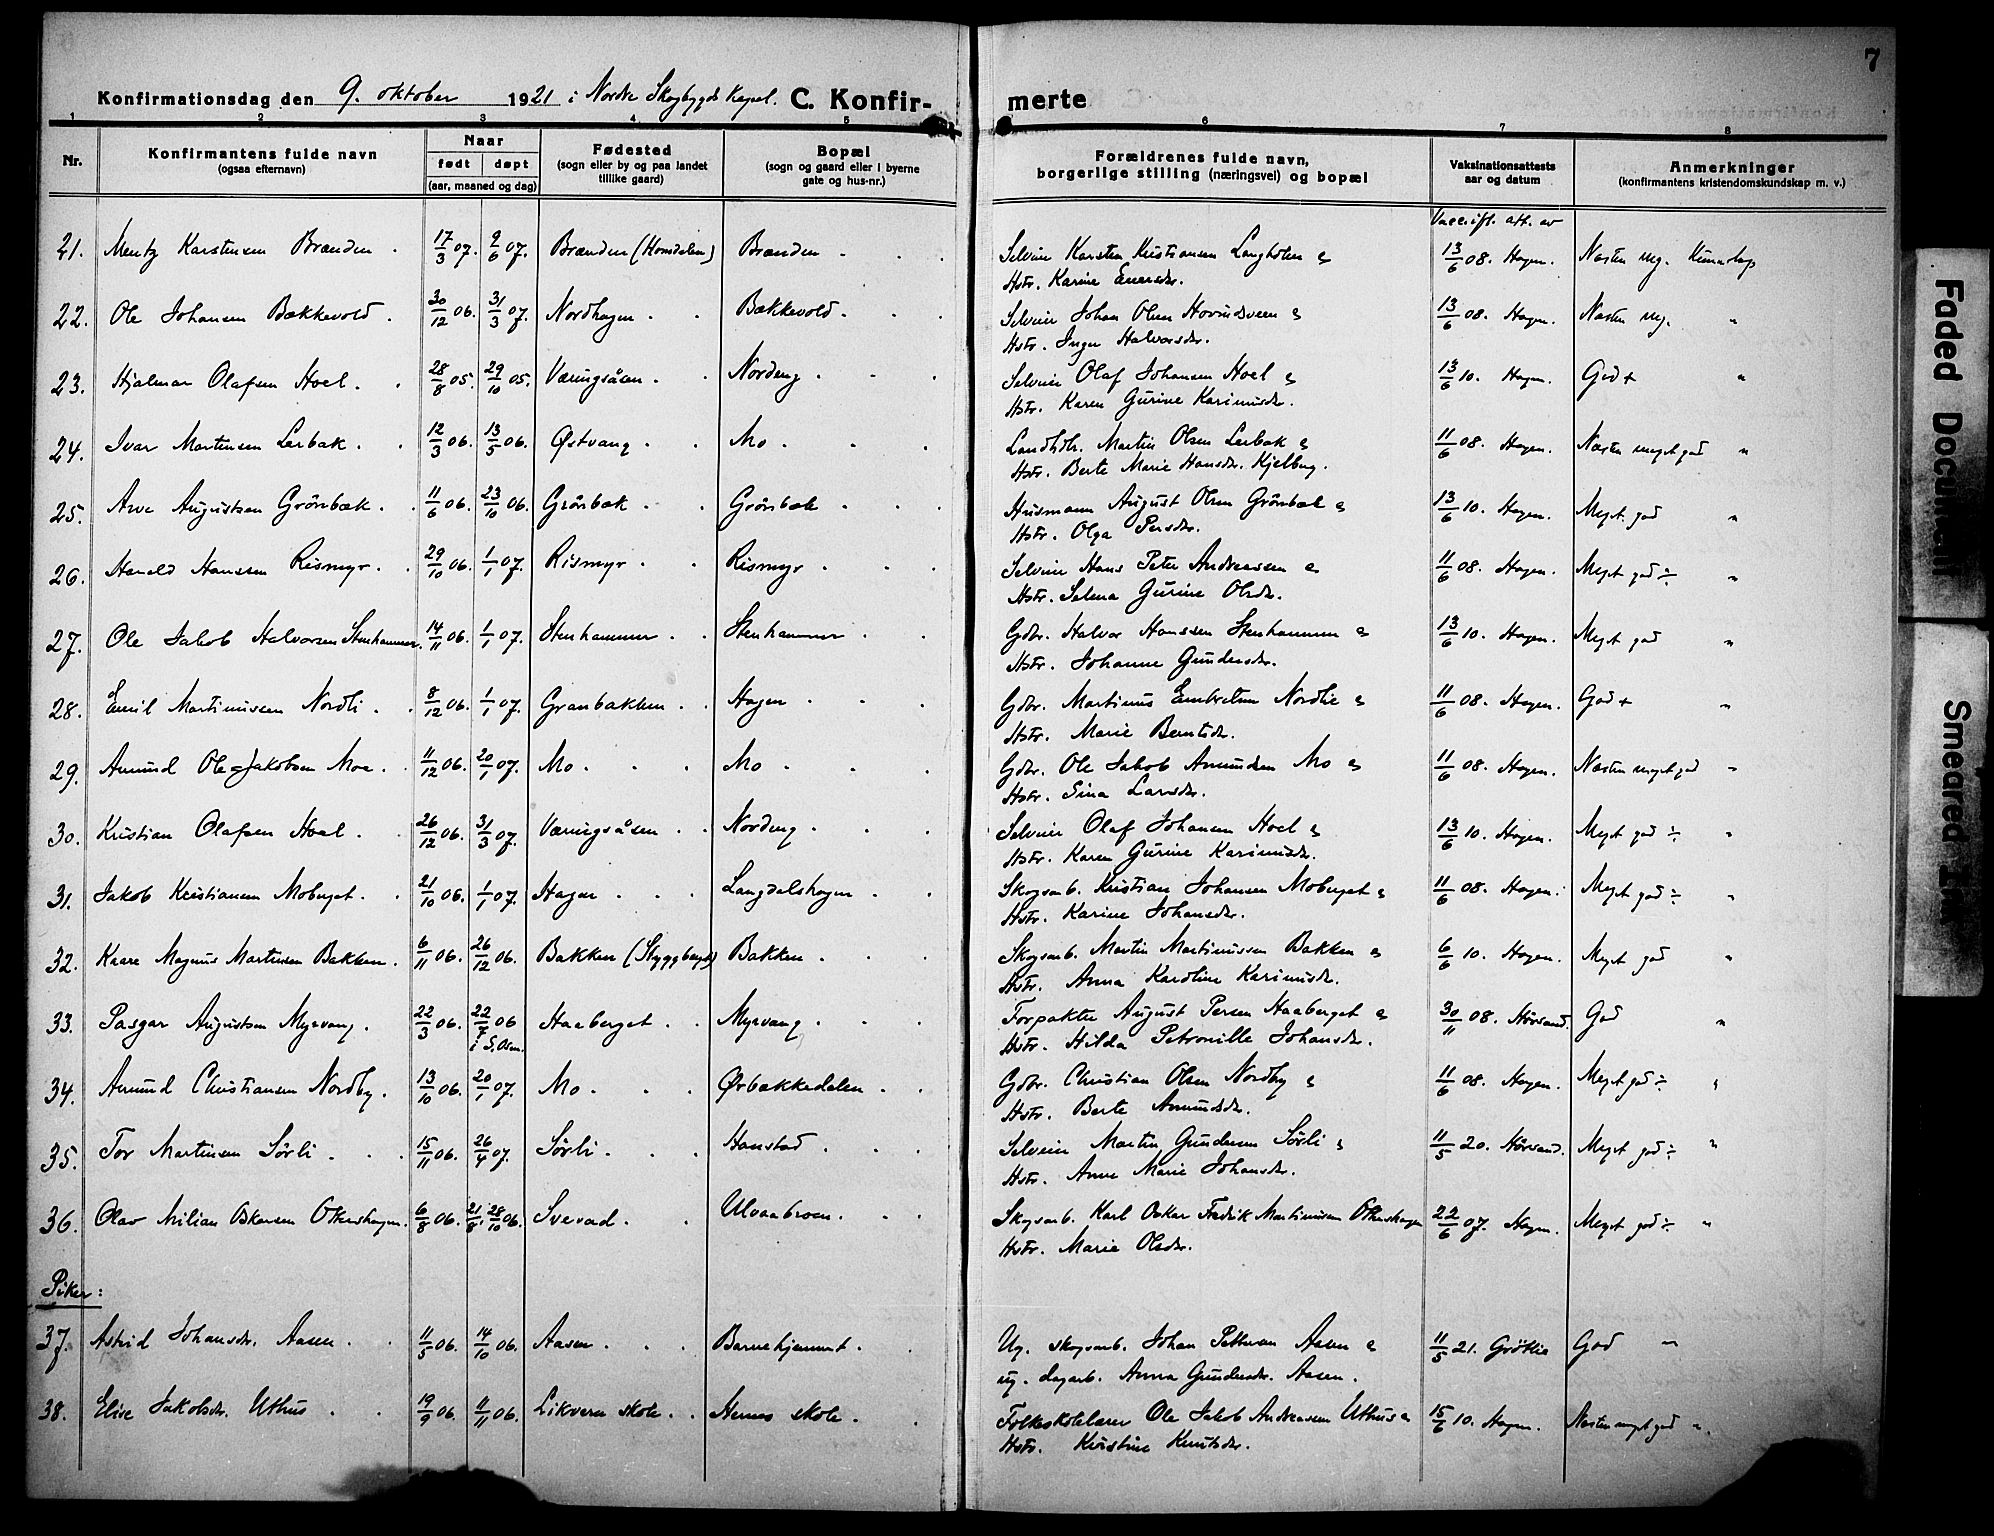 7
Konfirmationsdag den 9. oktober 1921 i Nordre Skogbygds Kapel. C. Konfirmerte
1 2 3 4 5 6 7 8
Nr. Konfirmantens fulde navn (ogsaa efternavn) Naar født døpt (aar, maaned og dag) Fødested (sogn eller by og paa landet tillike gaard) Bopæl (sogn og gaard eller i byerne gate og hus-nr.) Forældrenes fulde navn, borgerlige stilling (næringsvei) og bopæl Vaksinationsattests aar og datum Anmerkninger (konfirmantens kristendomskundskap m. v.)
att. av
21. Mentz Karstensen Brænden. 17/3 07. 9/6 07. Brænden (Homdalen) Brænden Selveier Karsten Kristiansen Langholen & 13/6 08. Hagen. Næsten meg. Kunnskap
Hstr. Karine Enersdr.
22. Ole Johansen Bækkevold. 30/12 06. 31/3 07. Nordhagen Bækkevold Selveier Johan Olsen Hovindsveen & 13/6 08. Hagen. Næsten meg. "
Hstr. Inger Halvorsdr.
23. Hjalmar Olafsen Hoel. 28/8 05. 29/10 05. Væringsåsen Nordeng Selveier Olaf Johansen Hoel & 13/6 10. Hagen. God + "
Hstr. Karen Gurine Karinusdr.
24. Ivar Martinsen Lerbak. 12/3 06. 13/5 06. Østvang Mo Landhdlr. Martin Olsen Lerbak & 11/6 08. Hagen. Næsten meget god "
Hstr. Berte Marie Hansdr. Kjelberg.
25. Arve Augustsen Grönbæk. 11/6 06. 23/10 06. Grönbæk Grönbæk Husmann August Olsen Grönbæk & 13/6 10. Hagen. Meget god "
Hstr. Olga Persdr.
26. Harald Hanssen Rismyr. 29/10 06. 1/1 07. Rismyr Rismyr Selveier Hans Peter Andreassen & 11/6 08. Hagen. Meget god ÷ "
Hstr. Selma Gurine Olsdr.
27. Ole Jakob Halvorsen Stenhammer. 14/11 06. 1/1 07. Stenhammer Stenhammer Gdbr. Halvor Hanssen Stenhammer & 13/6 10. Hagen. Meget god "
Hstr. Johanne Gundersdr.
28. Emil Martinussen Nordli. 8/12 06. 1/1 07. Granbakken Hagen Gdbr. Martinus Embretsen Nordlie & 11/6 08. Hagen. God + "
Hstr. Marie Berntsdr.
29. Amund Ole-Jakobsen Moe. 11/12 06. 20/1 07. Mo Mo Gdbr. Ole Jakob Amundsen Mo & 11/6 08. Hagen. Næsten meget god "
Hstr. Sina Larsdr.
30. Kristian Olafsen Hoel. 26/12 06. 31/3 07. Væringsåsen Nordeng Selveier Olaf Johansen Hoel & 13/6 10. Hagen. Meget god ÷ "
Hstr. Karen Gurine Karinusdr.
31. Jakob Kristiansen Moberget. 21/10 06. 1/1 07. Hagen Langdalshagen Skogsarb. Kristian Johansen Moberget & 11/6 08. Hagen. Meget god ÷ "
Hstr. Karine Johansdr.
32. Kaare Magnus Martinsen Bakken. 6/11 06. 26/12 06. Bakken (Skyggbergb) Bakken Skogsarb. Martin Martinussen Bakken & 6/6 10. Hagen. Meget god "
Hstr. Anna Karoline Karinusdr.
33. Pasgar Augustsen Myrvang. 22/3 06. 22/7 06 i S. Osen. Haaberget Myrvang Forpakter August Persen Haaberget & 30/11 08. Hörsand. God "
Hstr. Hilda Petronille Johansdr.
34. Amund Christiansen Nordby. 13/10 06. 20/1 07. Mo Ørbækkedalen Gdbr. Christian Olsen Nordby & 11/6 08. Hagen. Meget god ÷ "
Hstr. Berte Amundsdr.
35. Tor Martinsen Sörli. 15/11 06. 26/4 07. Sörli Hanstad Selveier Martin Gundersen Sörli & 11/5 20. Hörsand. Meget god ÷ "
Hstr. Anne Marie Johansdr.
36. Olav Milian Oskarsen Okershagen. 6/8 06. 21/8, 28/10 06. Svevad Ulvaabroen Skogsarb. Karl Oskar Fredrik Martinusen Okershagen 22/6 07. Hagen. Meget god ÷ "
Hstr. Marie Olsdr.
Piker:
37. Astrid Johansdr. Aasen. 11/5 06. 14/10 06. Aasen Barnehjemmet Ug. skogsarb. Johan Pettersen Aasen & 11/5 21. Gröttlie God "
ug. dagarb. Anna Gundersdr. Aasen.
38. Elise Jakobsdr. Uthus 19/9 06. 11/11 06. Likvern skole Hernes skole Folkeskolelærer Ole Jakob Andreassen Uthus & 15/6 10. Hagen. Næsten meget god "
Hstr. Kristine Knutsdr.
Faded Document
Smeared Ink